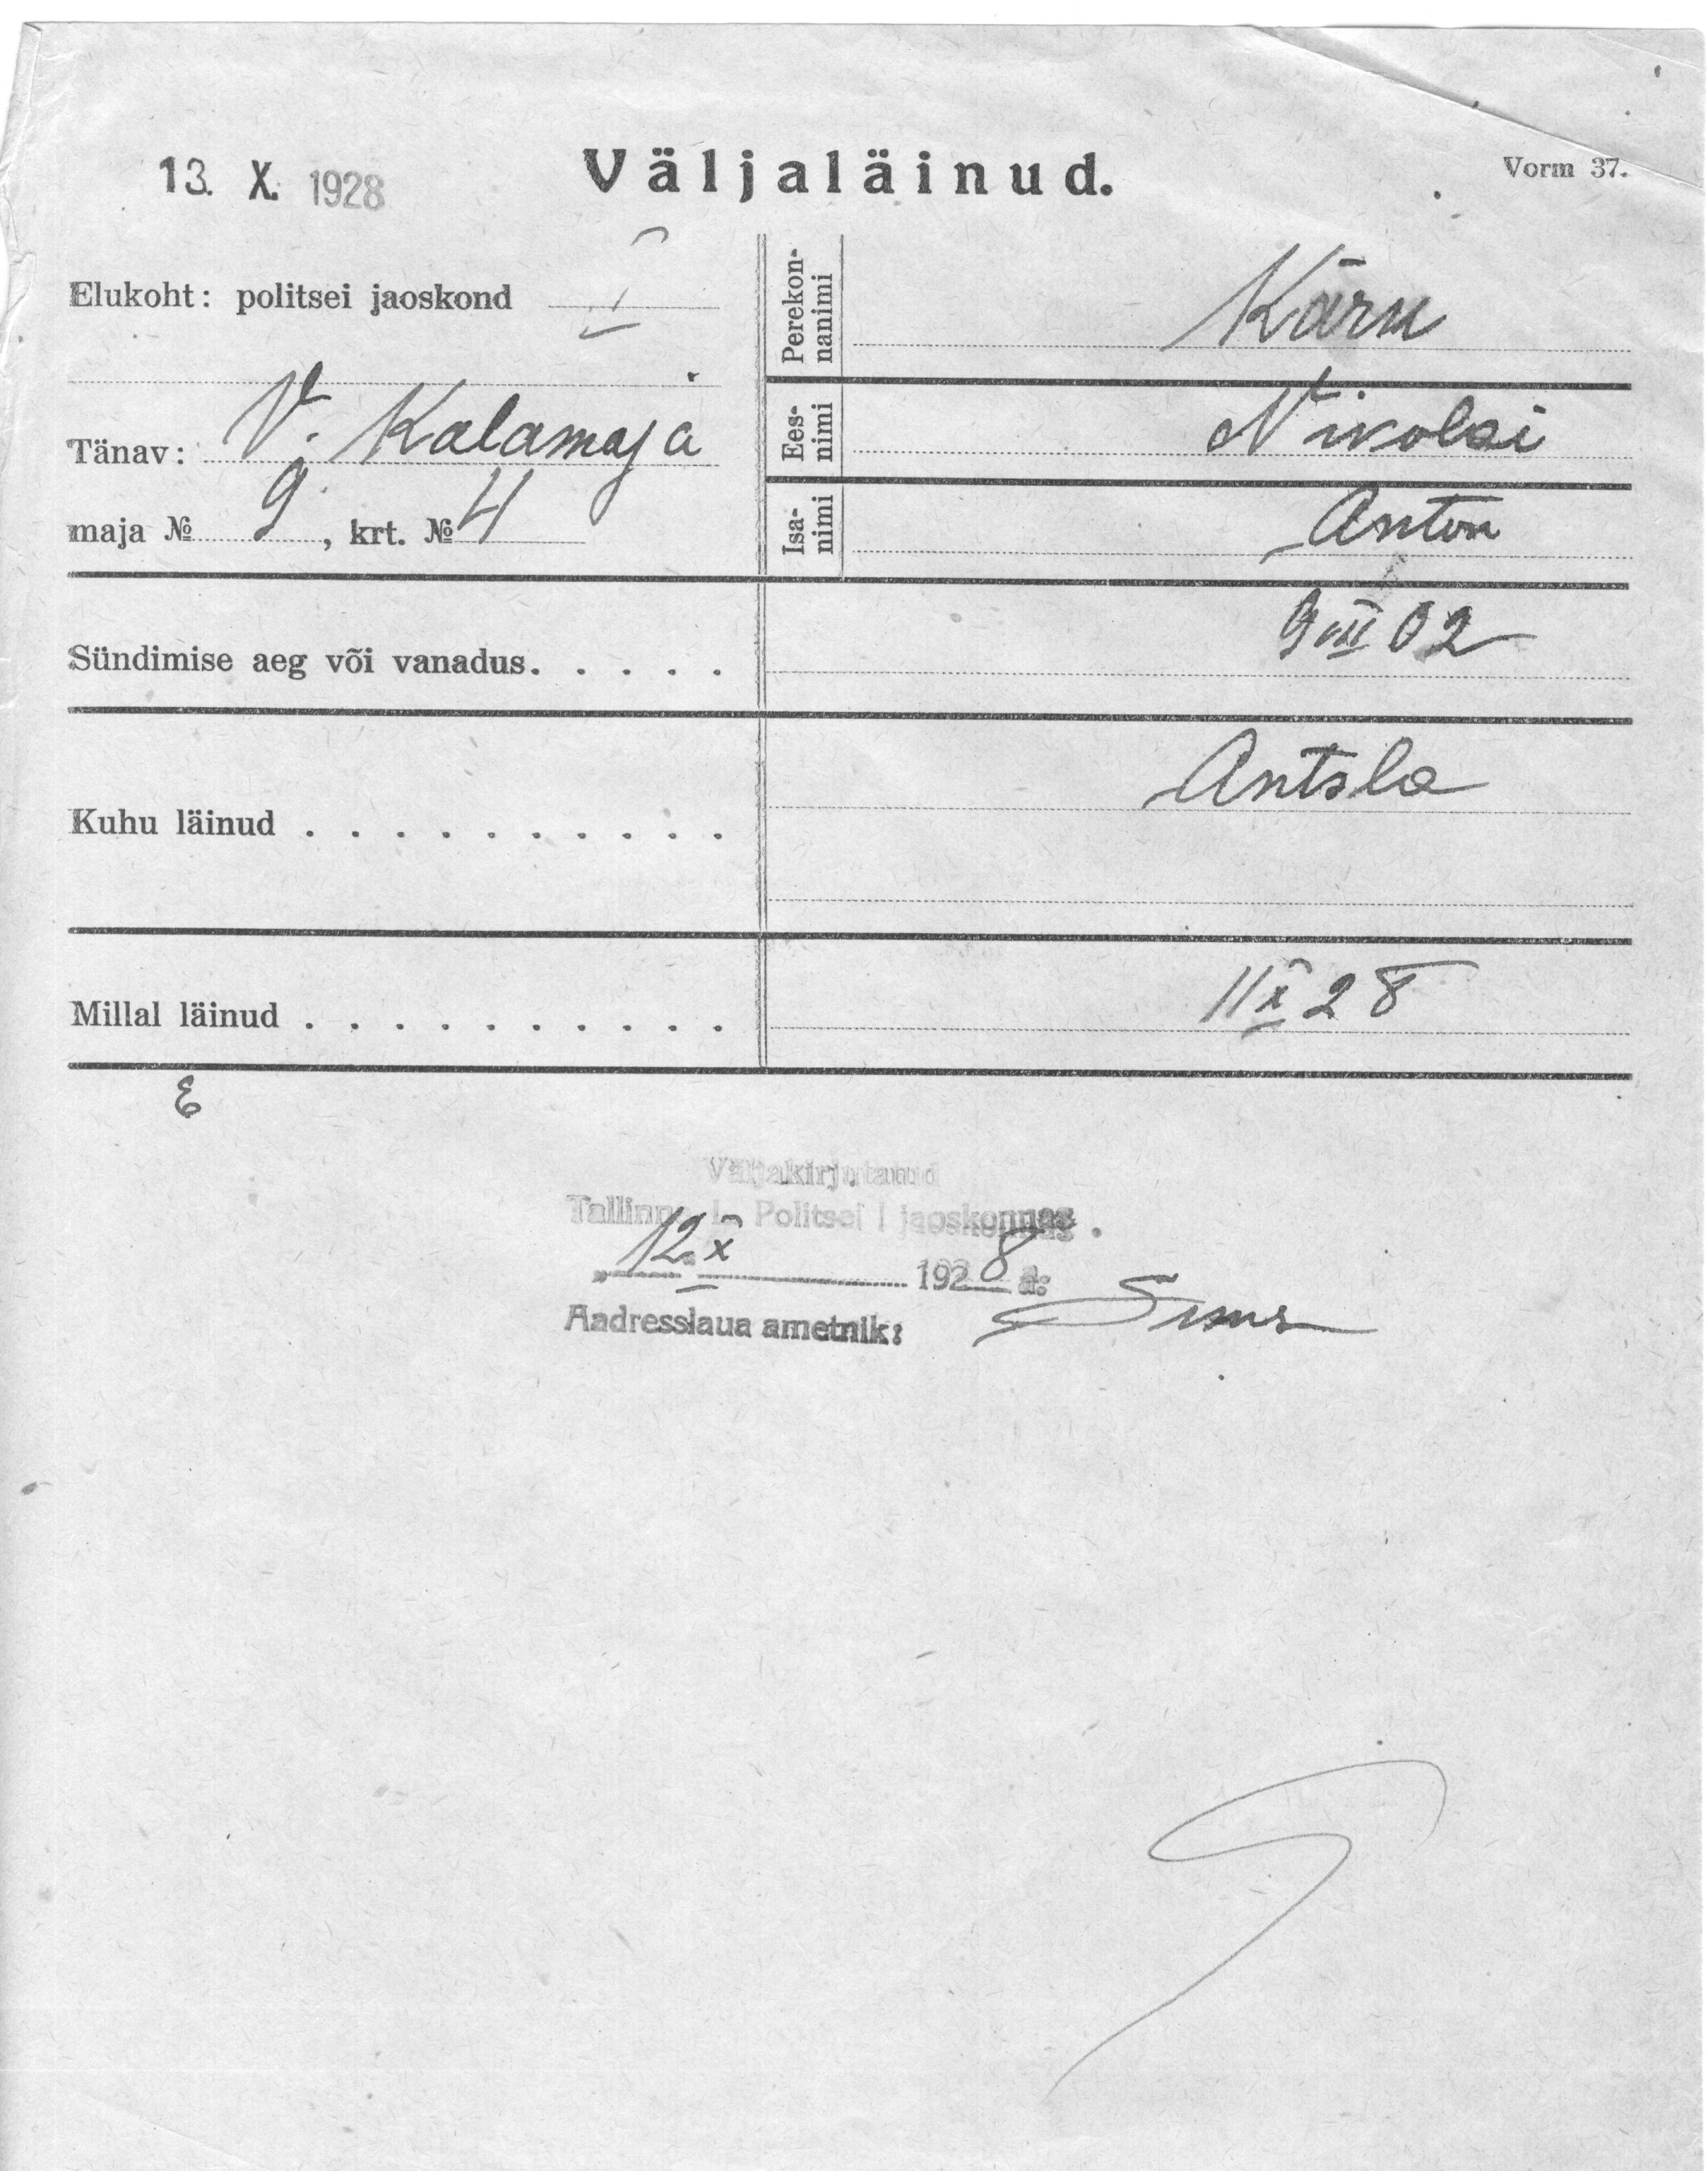 13. X. 1928
Väljaläinud.
Vorm 37.
Elukoht: politsei jaoskond I
Tänav: V. Kalamaja
maja № 9, krt. № 4
Perekon-
nanimi
Käru
Ees-
nimi
Nikolai
Isa-
nimi
Anton
Sündimise aeg või vanadus. . . . .
9 XII 02
Kuhu läinud . . . . . . . . . .
Antsla
Millal läinud . . . . . . . . . .
11 X 28
Väljakirjutanud
Tallinna L. Politsei I jaoskonnas.
„12." X 1928 a:
Aadresslaua ametnik: